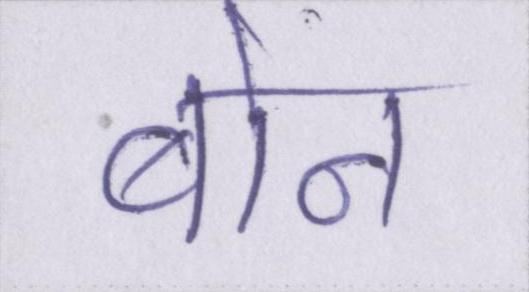 बोन